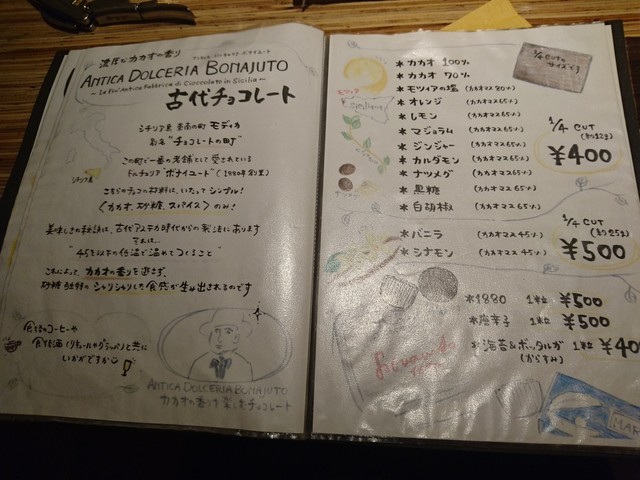 濃厚なカカオの香り
アンティカ・ドルチェリーア・ボナイユート
ANTICA DOLCERIA BONAJUTO
- La Più Antica Fabbrica di Cioccolato in Sicilia -
古代チョコレート
シチリア島 東南の町 モディカ
別名 "チョコレートの町"
この町で一番の老舗として愛されている
ドルチェリア "ボナイユート" (1880年創業)
シチリア島
こちらのチョコの材料は、いたってシンプル!
〈カカオ、砂糖、スパイス〉のみ!
美味しさの秘訣は、古代アステカ時代からの製法にあります
それは、
"45℃以下の低温で温めてつくること"
これによって、カカオの香りを逃さず、
砂糖独特のシャリシャリした食感が生み出されるのです
食後のコーヒーや
食後酒(リキュールやグラッパ)と共に
いかがですか
ANTICA DOLCERIA BONAJUTO
カカオの香りを楽しむチョコレート
* カカオ 100%
* カカオ 70%
* モツィアの塩 (カカオマス80%)
* オレンジ (カカオマス65%)
* レモン (カカオマス65%)
* マジョラム (カカオマス65%)
* ジンジャー (カカオマス65%)
* カルダモン (カカオマス65%)
* ナツメグ (カカオマス65%)
* 黒糖 (カカオマス65%)
* 白胡椒 (カカオマス65%)
1/4 CUTの
サイズです
1/4 CUT
¥400
* バニラ (カカオマス45%)
* シナモン (カカオマス45%)
1/4 CUT
(約25g)
¥500
* 1880 1粒 ¥500
* 唐辛子 1粒 ¥500
* 海苔&ボッタルガ 1粒 ¥40
(からすみ)
Bonajuto
MAR